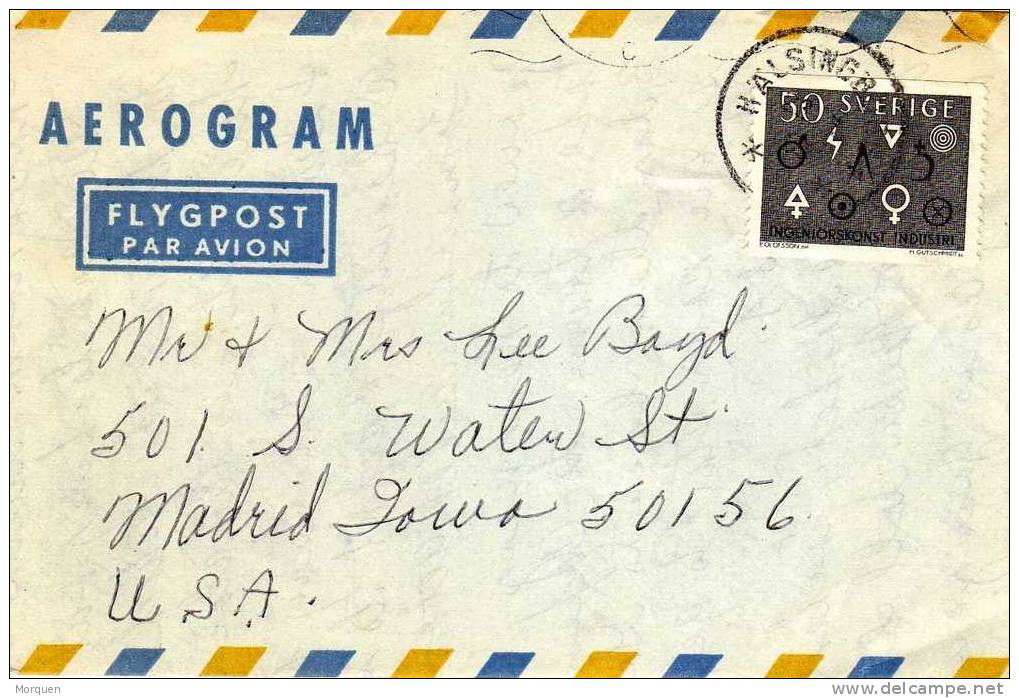 AEROGRAM
FLYGPOST
PAR AVION
HÄLSINGB
50 SVERIGE
INGENIÖRSKONST INDUSTRI
P. OLOFSSON
H. GUTSCHMIDT
Mr + Mrs Lee Boyd
501 S. Water St
Madrid Iowa 50156
U.S.A.
Morquen
www.delcampe.net